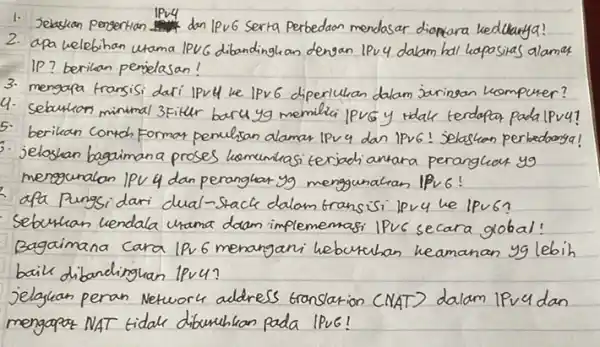 1. Jelaskan Pengertian IPv4 dan IPv6 Serta Perbedaan mendasar diantara keduanya!
2. apa kelebihan utama IPv6 dibandingkan dengan IPv4 dalam hal kapasitas alamat
IP? berikan penjelasan!
3. mengapa transisi dari IPv4 ke IPv6 diperlukan dalam jaringan komputer?
4. Sebutkan minimal 3 Fitur baru yg memiliki IPv6 y tidak terdapat pada IPv4!
5. berikan Contoh Format penulisan alamat IPv4 dan IPv6! jelaskan perbedaanya!
jelaskan bagaimana proses komunikasi terjadi antara perangkat yg
menggunakan IPv4 dan perangkat yg menggunakan IPv6!
apa Fungsi dari dual-Stack dalam transisi IPv4 ke IPv6?
Sebutkan kendala utama dalam implementasi IPv6 secara global!
Bagaimana Cara IPv6 menangani kebutuhan keamanan yg lebih
baik dibandingkan IPv4?
jelaskan peran Network address translation (NAT) dalam IPv4 dan
mengapa NAT tidak dibutuhkan pada IPv6!